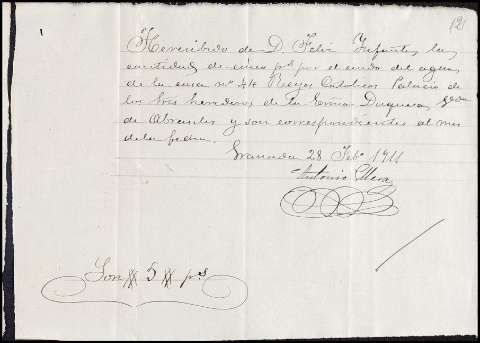 12
He recibido de D. Felix Infantes la
cantidad de cinco pts por el cuido del agua
de la casa nº 44 Reyes Catolicos Palacio de
los Sres herederos de la Exma Duquesa
de Abrantes y son correspondientes al mes
de la fecha.
Granada 28 Febº 1911
Antonio
Son # 5 # pts